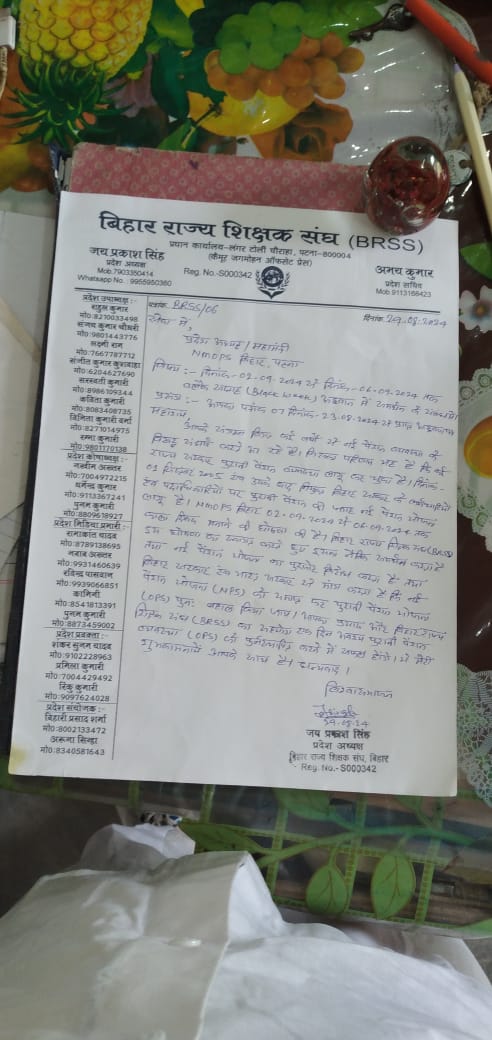 बिहार राज्य शिक्षक संघ (BRSS)
प्रधान कार्यालय-लंगर टोली चौराहा, पटना-800004
(कैमूर जगमोहन ऑफसेट प्रेस)
जय प्रकाश सिंह
प्रदेश अध्यक्ष
Mob.7903350414
Whatsapp No.: 9955950360
Reg. No.-S000342
अभय कुमार
प्रदेश सचिव
Mob.9113166423
पत्रांक: BRSS/06
दिनांक: 29.08.2024
प्रदेश उपाध्यक्ष :-
राहुल कुमार
मो0:8210033498
संजय कुमार चौधरी
मो0:9801443776
लक्ष्मी राम
मो0:7667787712
संजीत कुमार कुशवाहा
मो0:6204627690
सरस्वती कुमारी
मो0:8986109344
कविता कुमारी
मो0:8083408735
विमिता कुमारी वर्मा
मो0:8271014975
रम्भा कुमारी
मो0:9801170138
प्रदेश कोषाध्यक्ष :-
नज्वीम अख्तर
मो0:7004972215
धर्मेन्द्र कुमार
मो0:9113367241
पुनम कुमारी
मो0:8809618927
प्रदेश मिडिया प्रभारी :-
रामाकांत यादव
मो0:8789138695
नराब अख्तर
मो0:9931460639
रविन्द्र पासवान
मो0:9939066851
कामिनी
मो0:8541813391
पुनम कुमारी
मो0:8873459002
प्रदेश प्रवक्ता :-
शंकर सुमन यादव
मो0:9102228963
प्रमिला कुमारी
मो0:7004429492
रिंकु कुमारी
मो0:9097624028
प्रदेश संयोजक :-
बिहारी प्रसाद शर्मा
मो0:8002133472
अरूणा सिन्हा
मो0:8340581643
सेवा में,
प्रदेश अध्यक्ष/महामंत्री
NMOPS बिहार, पटना
विषय :- दिनांक-02-09-2024 से दिनांक-06-09-2024 तक
ब्लैक सप्ताह (Black Week) में समर्थन के संबंध में।
प्रसंग :- आपका पत्रांक 07 दिनांक-23-08-2024 से प्राप्त
महाशय,
आपके संगठन विगत कई वर्षों से नई पेंशन व्यवस्था के
विरुद्ध संघर्ष करते आ रहे हैं। जिसका परिणाम यह है कि कई
राज्य सरकार पुरानी पेंशन व्यवस्था लागू कर चुका है। दिनांक-
01 सितम्बर 2005 एवं उसके बाद नियुक्त बिहार सरकार के कर्मचारियों
एवं पदाधिकारियों पर पुरानी पेंशन की जगह नई पेंशन योजना
लागू है। NMOPS बिहार 02-09-2024 से 06-09-2024 तक
काला दिवस मनाने की घोषणा की है। बिहार राज्य शिक्षक संघ (BRSS)
इस घोषणा का स्वागत करते हुए इसका नैतिक समर्थन करता है
तथा नई पेंशन योजना का पुरजोर विरोध करता है तथा
बिहार सरकार एवं भारत सरकार से मांग करता है कि नई
पेंशन योजना (NPS) को समाप्त कर पुरानी पेंशन योजना
(OPS) पुनः बहाल किया जाय। आपका प्रयास और बिहार राज्य
शिक्षक संघ (BRSS) का सहयोग एक दिन अवश्य पुरानी पेंशन
व्यवस्था (OPS) को पुनर्स्थापित करने में सफल होंगे। मेरी
शुभकामनायें आपके साथ है। धन्यवाद।
विश्वासभाजन
29.08.24
जय प्रकाश सिंह
प्रदेश अध्यक्ष
बिहार राज्य शिक्षक संघ, बिहार
Reg. No.- S000342